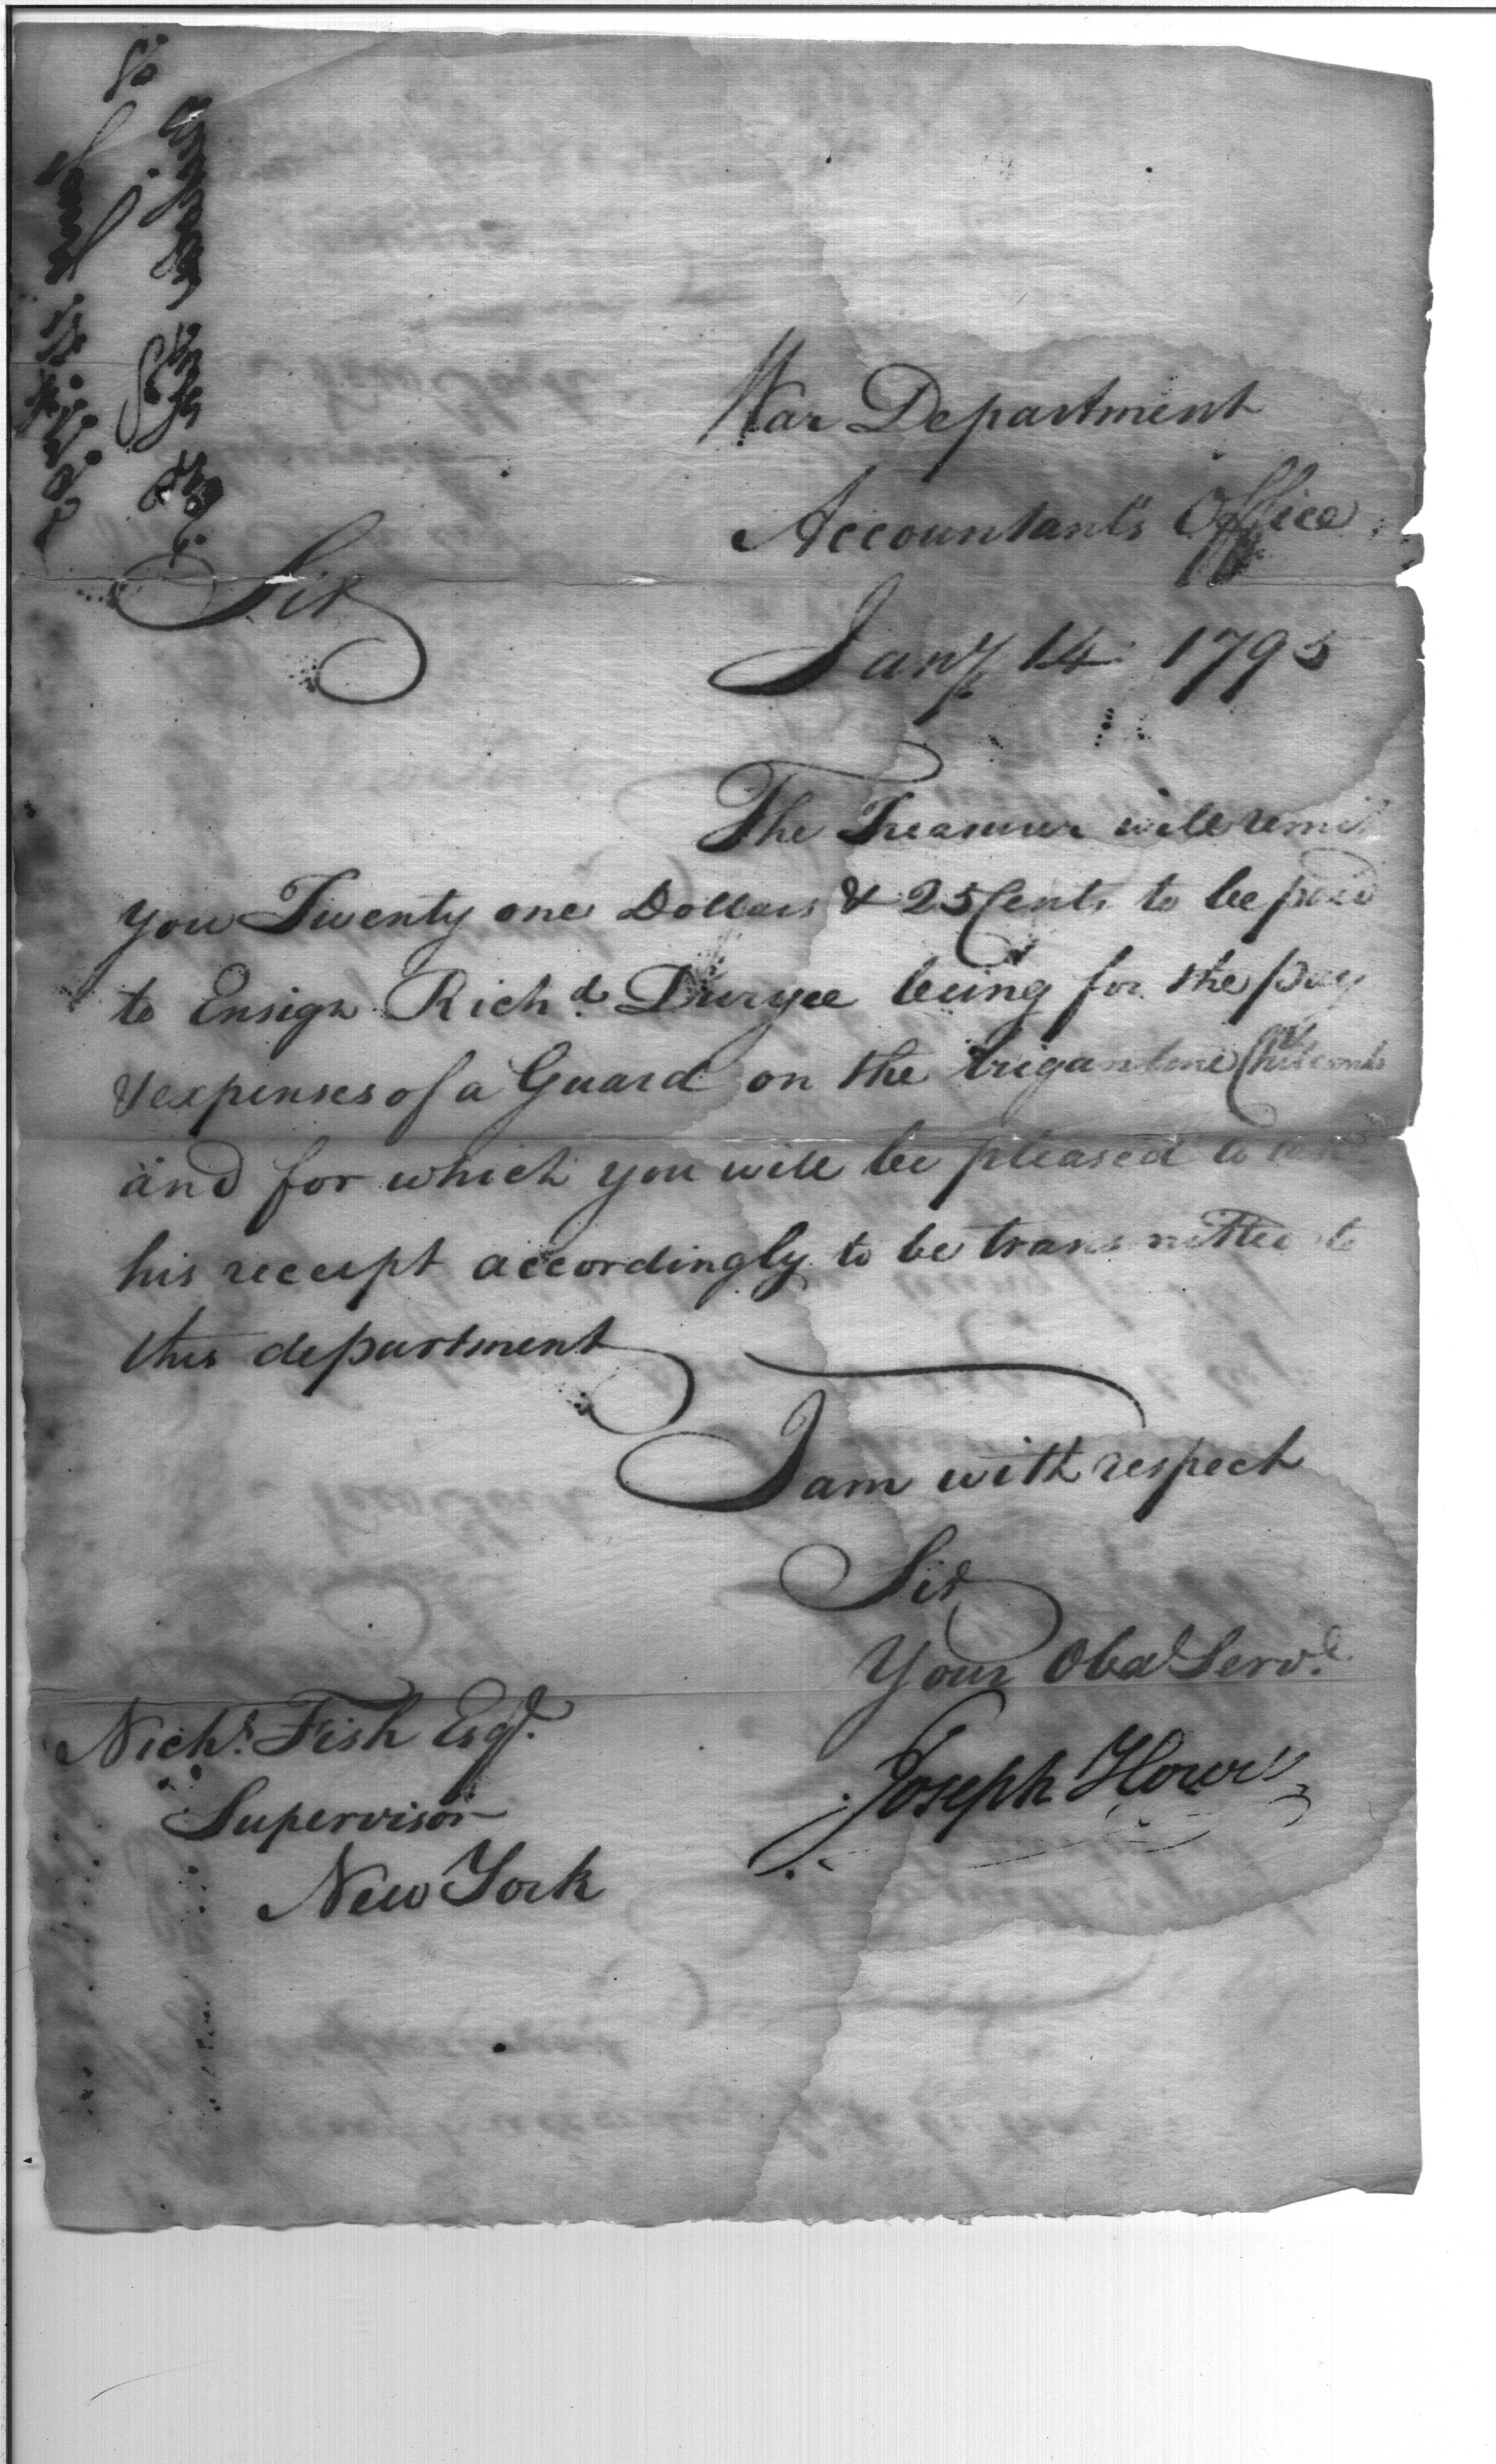 War Department
Accountant's Office
Sir
Jany 14 1795
The Treasurer will remit
you Twenty one Dollars & 25 Cents to be paid
to Ensign Richd. Duryee being for the pay
& expenses of a Guard on the brigantine
and for which you will be pleased to
his receipt accordingly to be transmitted to
this department
I am with respect
Sir
Your Obed Servt.
Joseph Howell
Nichs. Fish Esqr.
Supervisor
New York